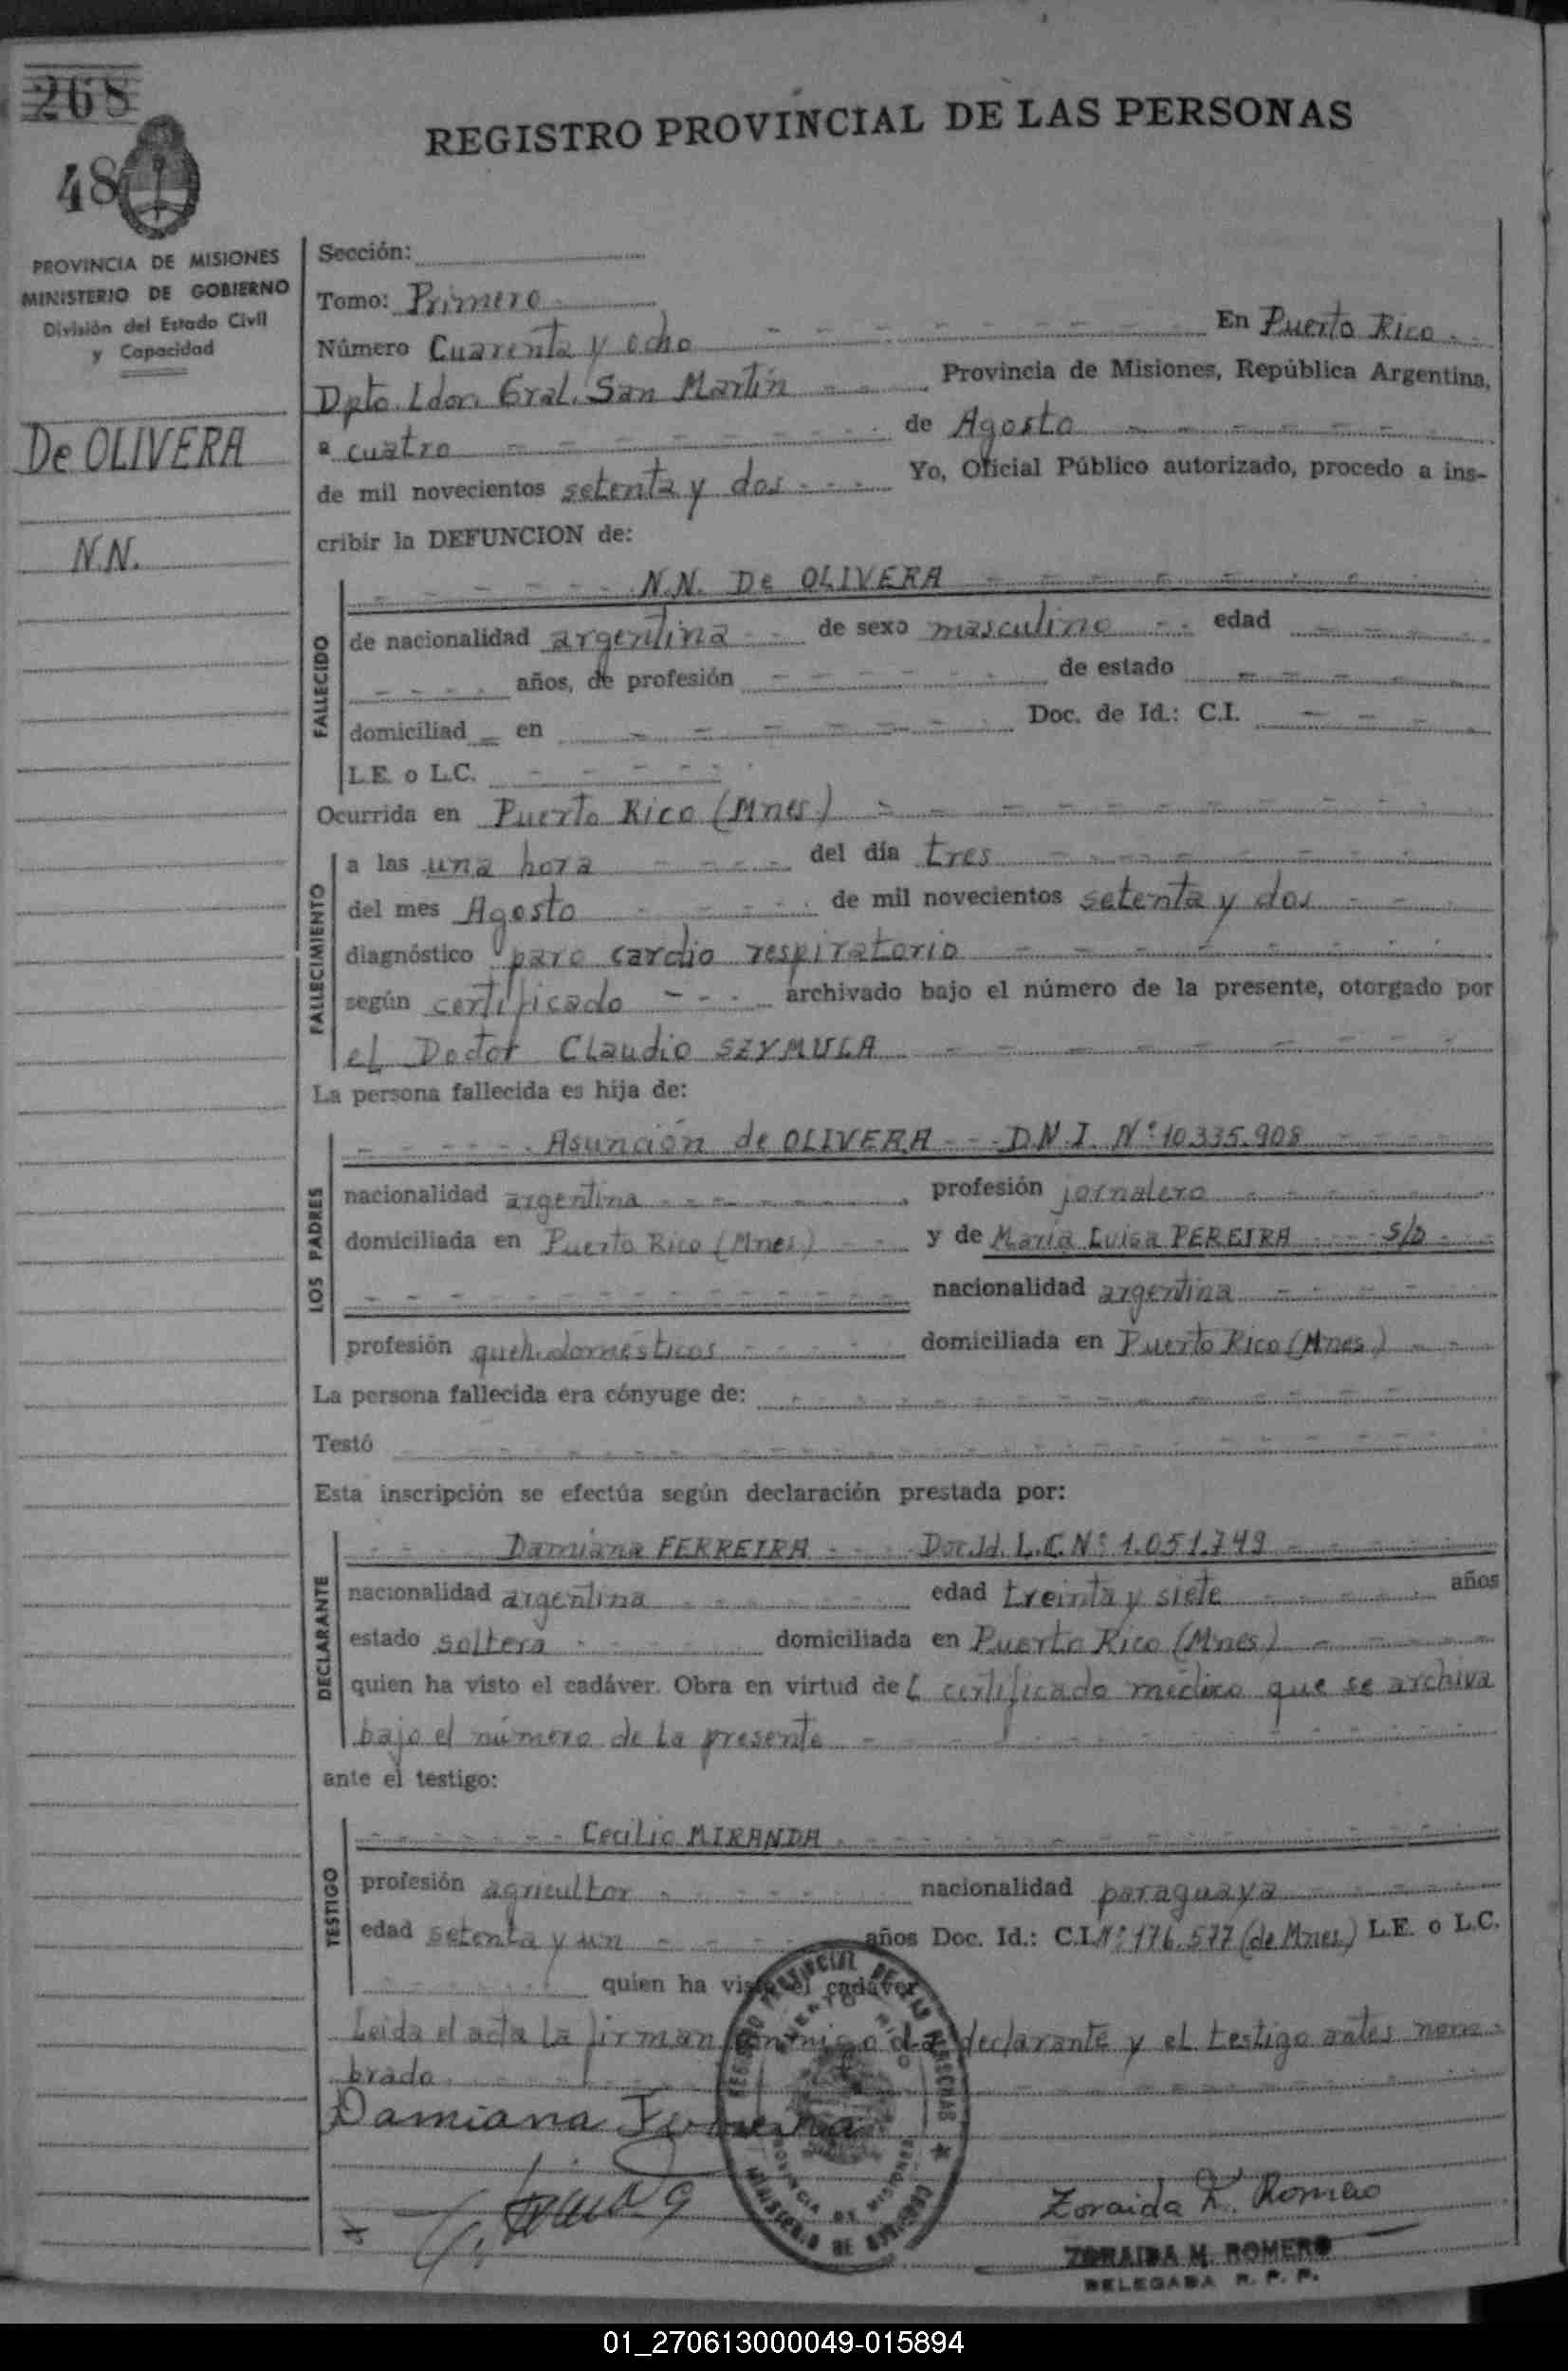 268
48
REGISTRO PROVINCIAL DE LAS PERSONAS
PROVINCIA DE MISIONES
MINISTERIO DE GOBIERNO
División del Estado Civil
y Capacidad
De OLIVERA
N.N.
Sección:
Tomo: Primero
Número Cuarenta y ocho En Puerto Rico
Dpto. Ldor. Gral. San Martín Provincia de Misiones, República Argentina,
a cuatro de Agosto
de mil novecientos setenta y dos Yo, Oficial Público autorizado, procedo a ins-
cribir la DEFUNCION de:
FALLECIDO
N.N. De OLIVERA
de nacionalidad argentina de sexo masculino edad
años, de profesión de estado
domiciliad en Doc. de Id.: C.I.
L.E. o L.C.
Ocurrida en Puerto Rico (Mnes)
FALLECIMIENTO
a las una hora del día tres
del mes Agosto de mil novecientos setenta y dos
diagnóstico paro cardio respiratorio
según certificado archivado bajo el número de la presente, otorgado por
el Doctor Claudio SZYMULA
La persona fallecida es hija de:
LOS PADRES
Asunción de OLIVERA D.N.I. Nº 10.335.908
nacionalidad argentina profesión jornalero
domiciliada en Puerto Rico (Mnes) y de María Luisa PEREIRA S/D
nacionalidad argentina
profesión domésticos domiciliada en Puerto Rico (Mnes)
La persona fallecida era cónyuge de:
Testó
Esta inscripción se efectúa según declaración prestada por:
DECLARANTE
Damiana FERREIRA Doc. Id. L.C. Nº 1.051.749
nacionalidad argentina edad treinta y siete años
estado soltera domiciliada en Puerto Rico (Mnes)
quien ha visto el cadáver. Obra en virtud del certificado médico que se archiva
bajo el número de la presente
ante el testigo:
TESTIGO
Cecilio MIRANDA
profesión agricultor nacionalidad paraguaya
edad setenta y un años Doc. Id.: C.I. Nº 176.577 (de Mnes) L.E. o L.C.
quien ha visto el cadáver
Leída el acta la firman conmigo la declarante y el testigo antes nom-
brado
Damiana Ferreira
Zoraida Romero
ZORAIDA M. ROMERO
DELEGADA R. P. P.
01_270613000049-015894